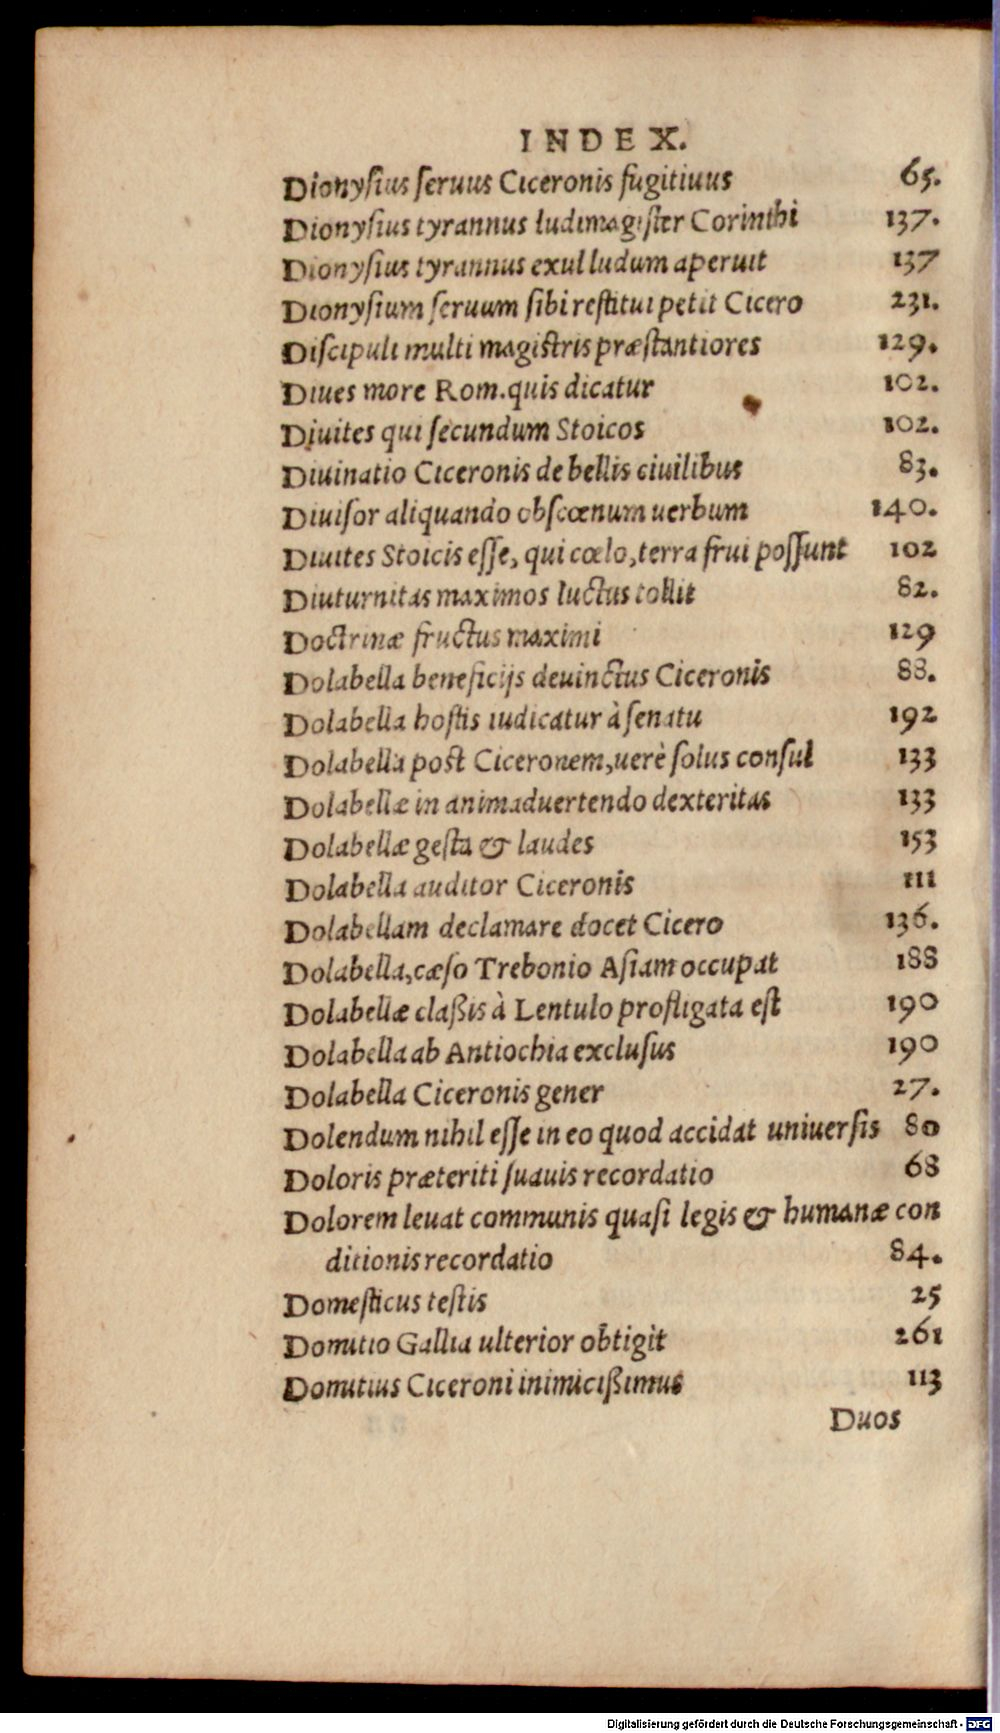 INDEX.
Dionysius seruus Ciceronis fugitiuus 65.
Dionysius tyrannus ludimagister Corinthi 137.
Dionysius tyrannus exul ludum aperuit 137
Dionysium seruum sibi restitui petit Cicero 231.
Discipuli multi magistris præstantiores 129.
Diues more Rom. quis dicatur 102.
Diuites qui secundum Stoicos 102.
Diuinatio Ciceronis de bellis ciuilibus 83.
Diuisor aliquando obscœnum uerbum 140.
Diuites Stoicis esse, qui cœlo, terra frui possunt 102
Diuturnitas maximos luctus tollit 82.
Doctrinæ fructus maximi 129
Dolabella beneficijs deuinctus Ciceronis 88.
Dolabella hostis iudicatur à senatu 192
Dolabella post Ciceronem, uerè solus consul 133
Dolabellæ in animaduertendo dexteritas 133
Dolabellæ gesta & laudes 153
Dolabella auditor Ciceronis 111
Dolabellam declamare docet Cicero 136.
Dolabella, cæso Trebonio Asiam occupat 188
Dolabellæ claßis à Lentulo profligata est 190
Dolabella ab Antiochia exclusus 190
Dolabella Ciceronis gener 27.
Dolendum nihil esse in eo quod accidat uniuersis 80
Doloris præteriti suauis recordatio 68
Dolorem leuat communis quasi legis & humanæ con
ditionis recordatio 84.
Domesticus testis 25
Domitio Gallia ulterior obtigit 261
Domitius Ciceroni inimicißimus 113
Duos
Digitalisierung gefördert durch die Deutsche Forschungsgemeinschaft - DFG